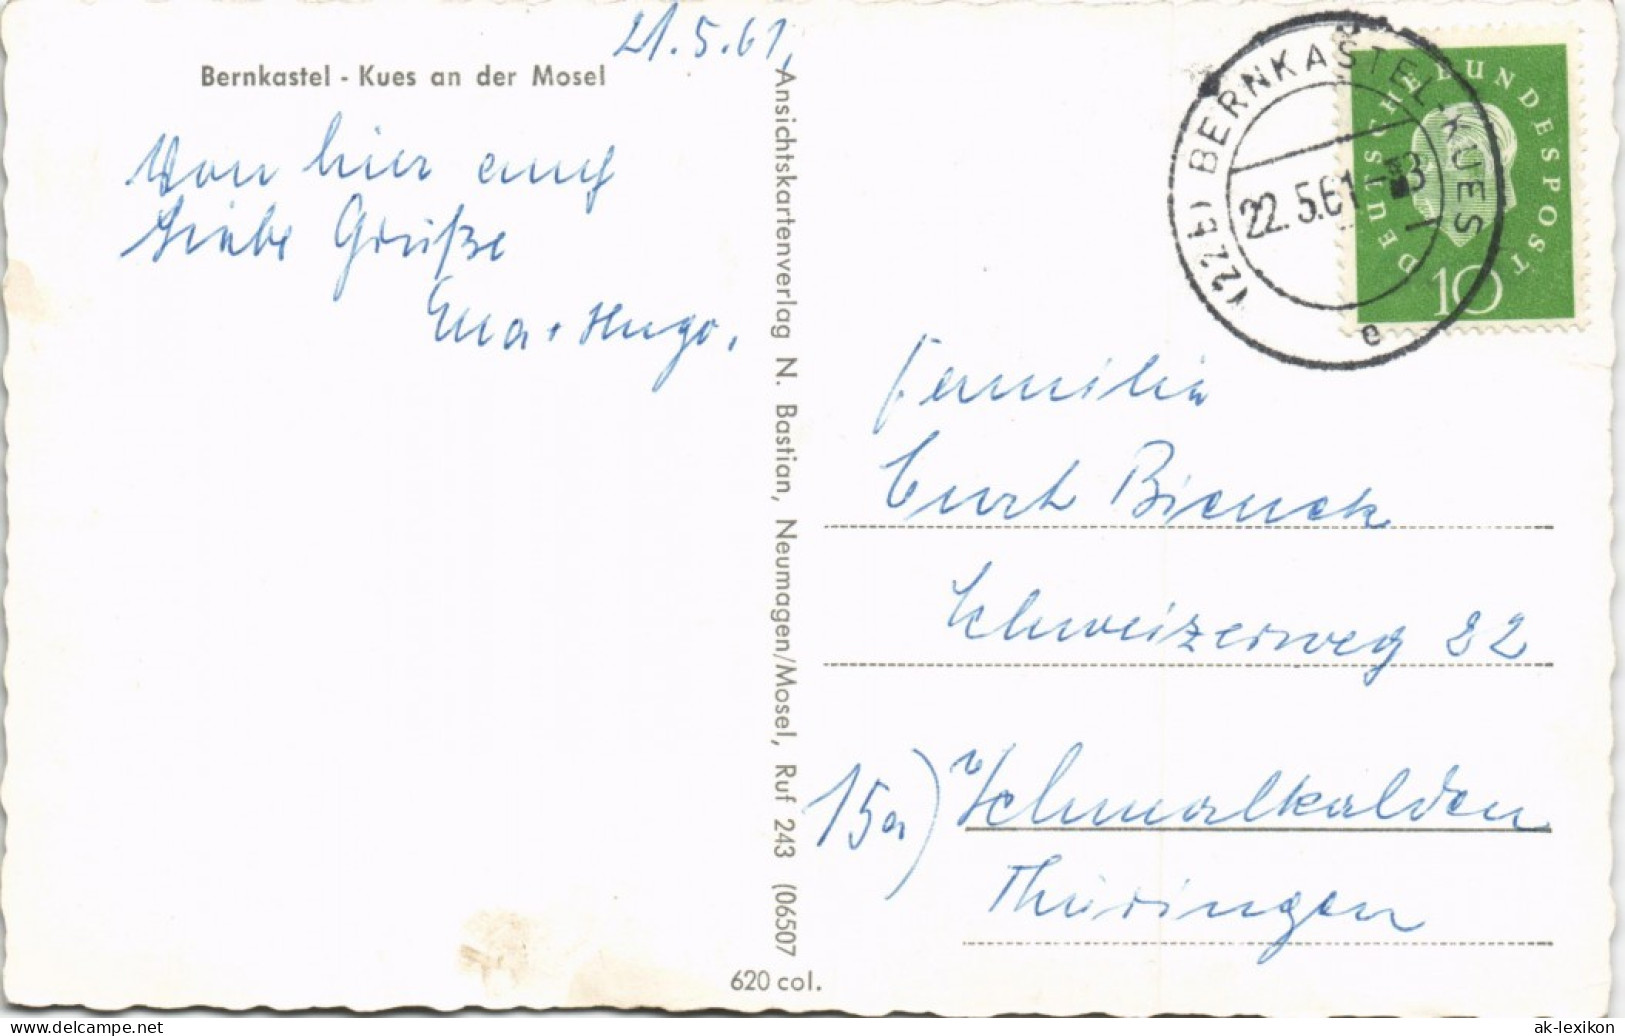 21.5.61.
Bernkastel - Kues an der Mosel
Von hier auch
liebe Grüße
Ella + Hugo.
Ansichtskartenverlag N. Bastian, Neumagen/Mosel, Ruf 243 (06507
620 col.
(22b) BERNKASTEL-KUES
22.5.61
e
DEUTSCHE BUNDESPOST
10
Familie
Curt
Schweizerweg 22
15a) Schmalkalden
Thüringen
www.delcampe.net
ak-lexikon